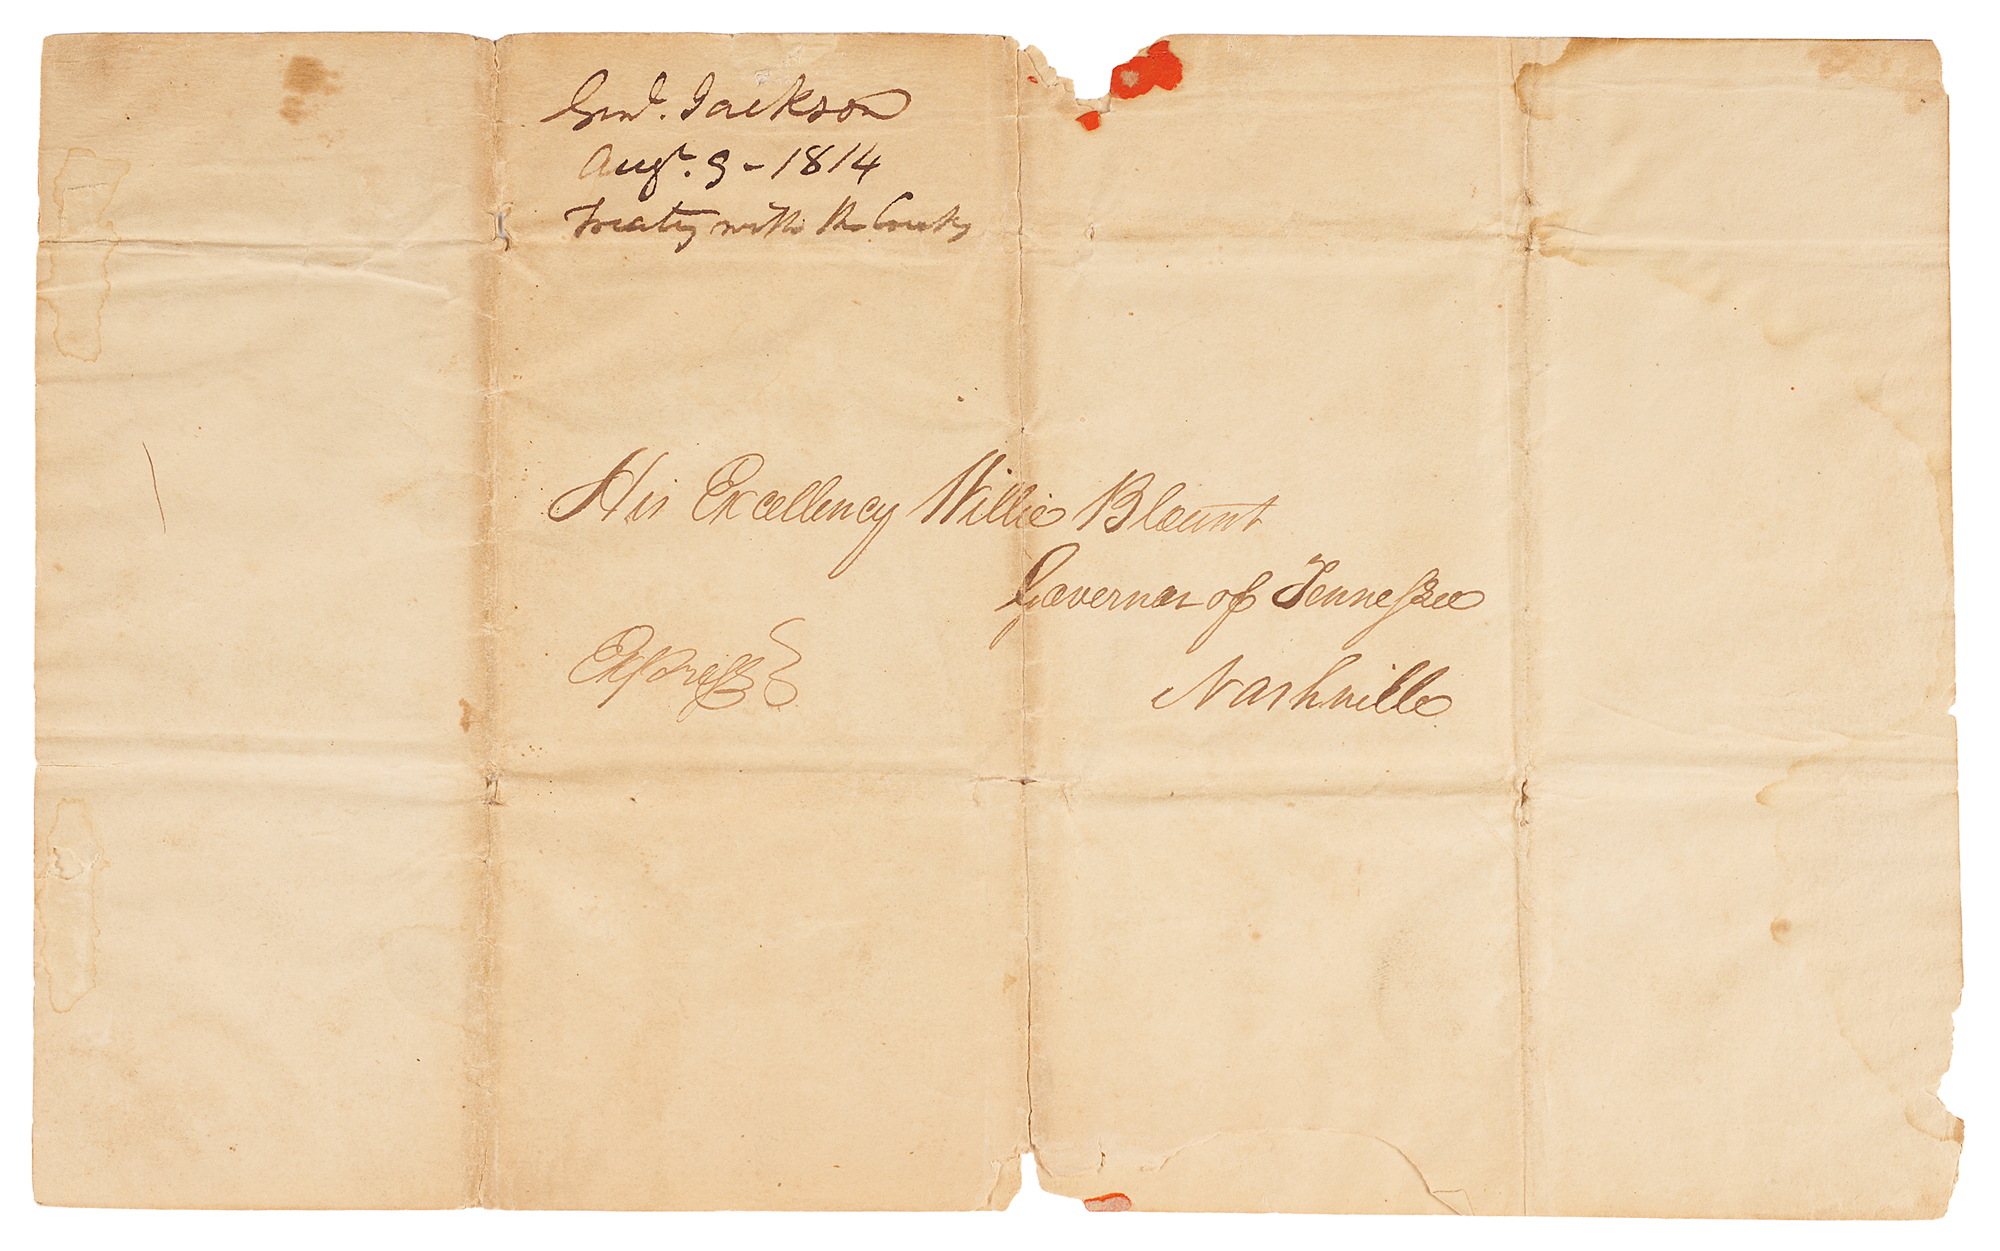 Genl. Jackson
Augt. 9 - 1814
Treaty with the Creeks
His Excellency Willie Blount
Governor of Tennessee
Express
Nashville